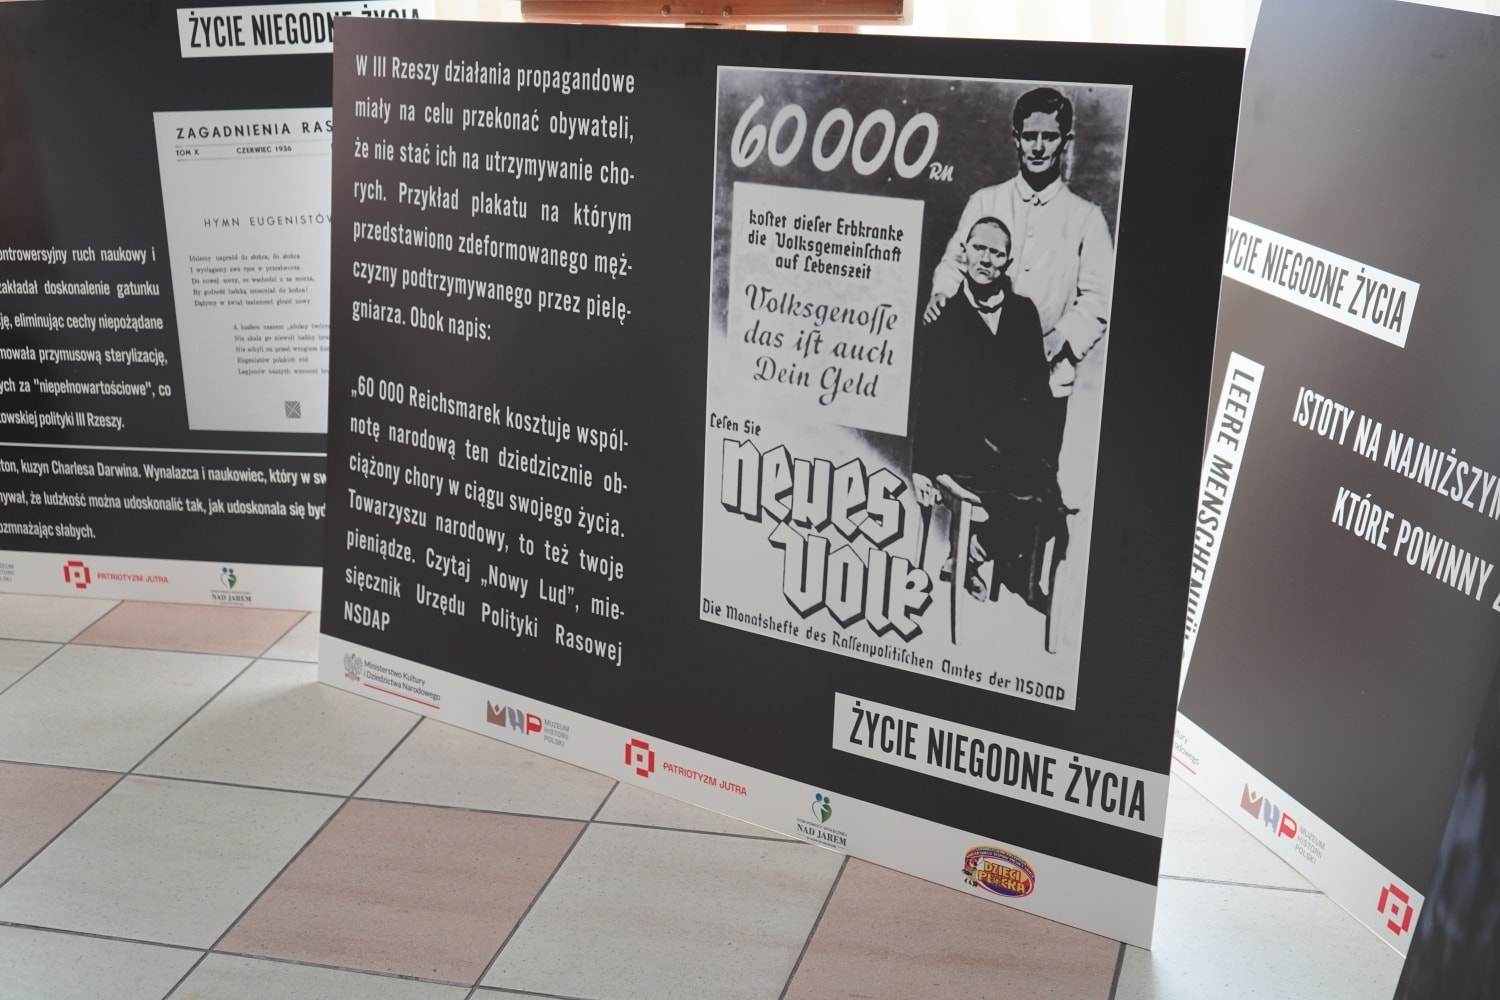 ŻYCIE NIEGODNE ŻYCIA
ZAGADNIENIA RAS
TOM X CZERWIEC 1936
HYMN EUGENISTÓW
ontrowersyjny ruch naukowy i
zakładał doskonalenie gatunku
ję, eliminując cechy niepożądane
mowała przymusową sterylizację,
ych za "niepełnowartościowe", co
owskiej polityki III Rzeszy.
ton, kuzyn Charlesa Darwina. Wynalazca i naukowiec, który w sw
mywał, że ludzkość można udoskonalić tak, jak udoskonala się byd
ozmnażając słabych.
PATRIOTYZM JUTRA
NAD JAREM
W III Rzeszy działania propagandowe
miały na celu przekonać obywateli,
że nie stać ich na utrzymywanie cho-
rych. Przykład plakatu na którym
przedstawiono zdeformowanego męż-
czyzny podtrzymywanego przez pielę-
gniarza. Obok napis:
„60 000 Reichsmarek kosztuje wspól-
notę narodową ten dziedzicznie ob-
ciążony chory w ciągu swojego życia.
Towarzyszu narodowy, to też twoje
pieniądze. Czytaj „Nowy Lud”, mie-
sięcznik Urzędu Polityki Rasowej
NSDAP
60000 RM
kostet dieser Erbkranke
die Volksgemeinschaft
auf Lebenszeit
Volksgenosse
das ist auch
Dein Geld
Lesen Sie
neues
Volk
Die Monatshefte des Rassenpolitischen Amtes der NSDAP
ŻYCIE NIEGODNE ŻYCIA
Ministerstwo Kultury
i Dziedzictwa Narodowego
MHP MUZEUM
HISTORII
POLSKI
PATRIOTYZM JUTRA
NAD JAREM
DZIECI
PŁOCKA
ŻYCIE NIEGODNE ŻYCIA
LEERE MENSCHENHÜ
ISTOTY NA NAJNIŻSZYM
KTÓRE POWINNY
MHP MUZEUM
HISTORII
POLSKI